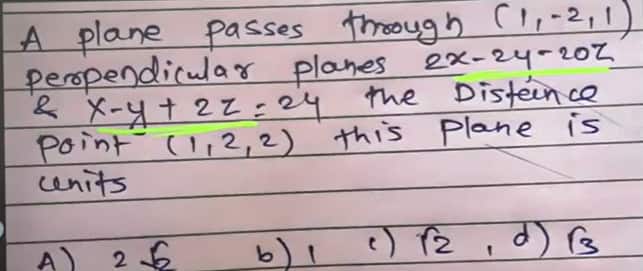 A plane passes through (1,-2,1)
perpendicular planes 2x-2y-20z
& x-y+2z=24 the Disteince
point (1,2,2) this plane is
units
A) 2√2 b) 1 c) √2 , d) √3